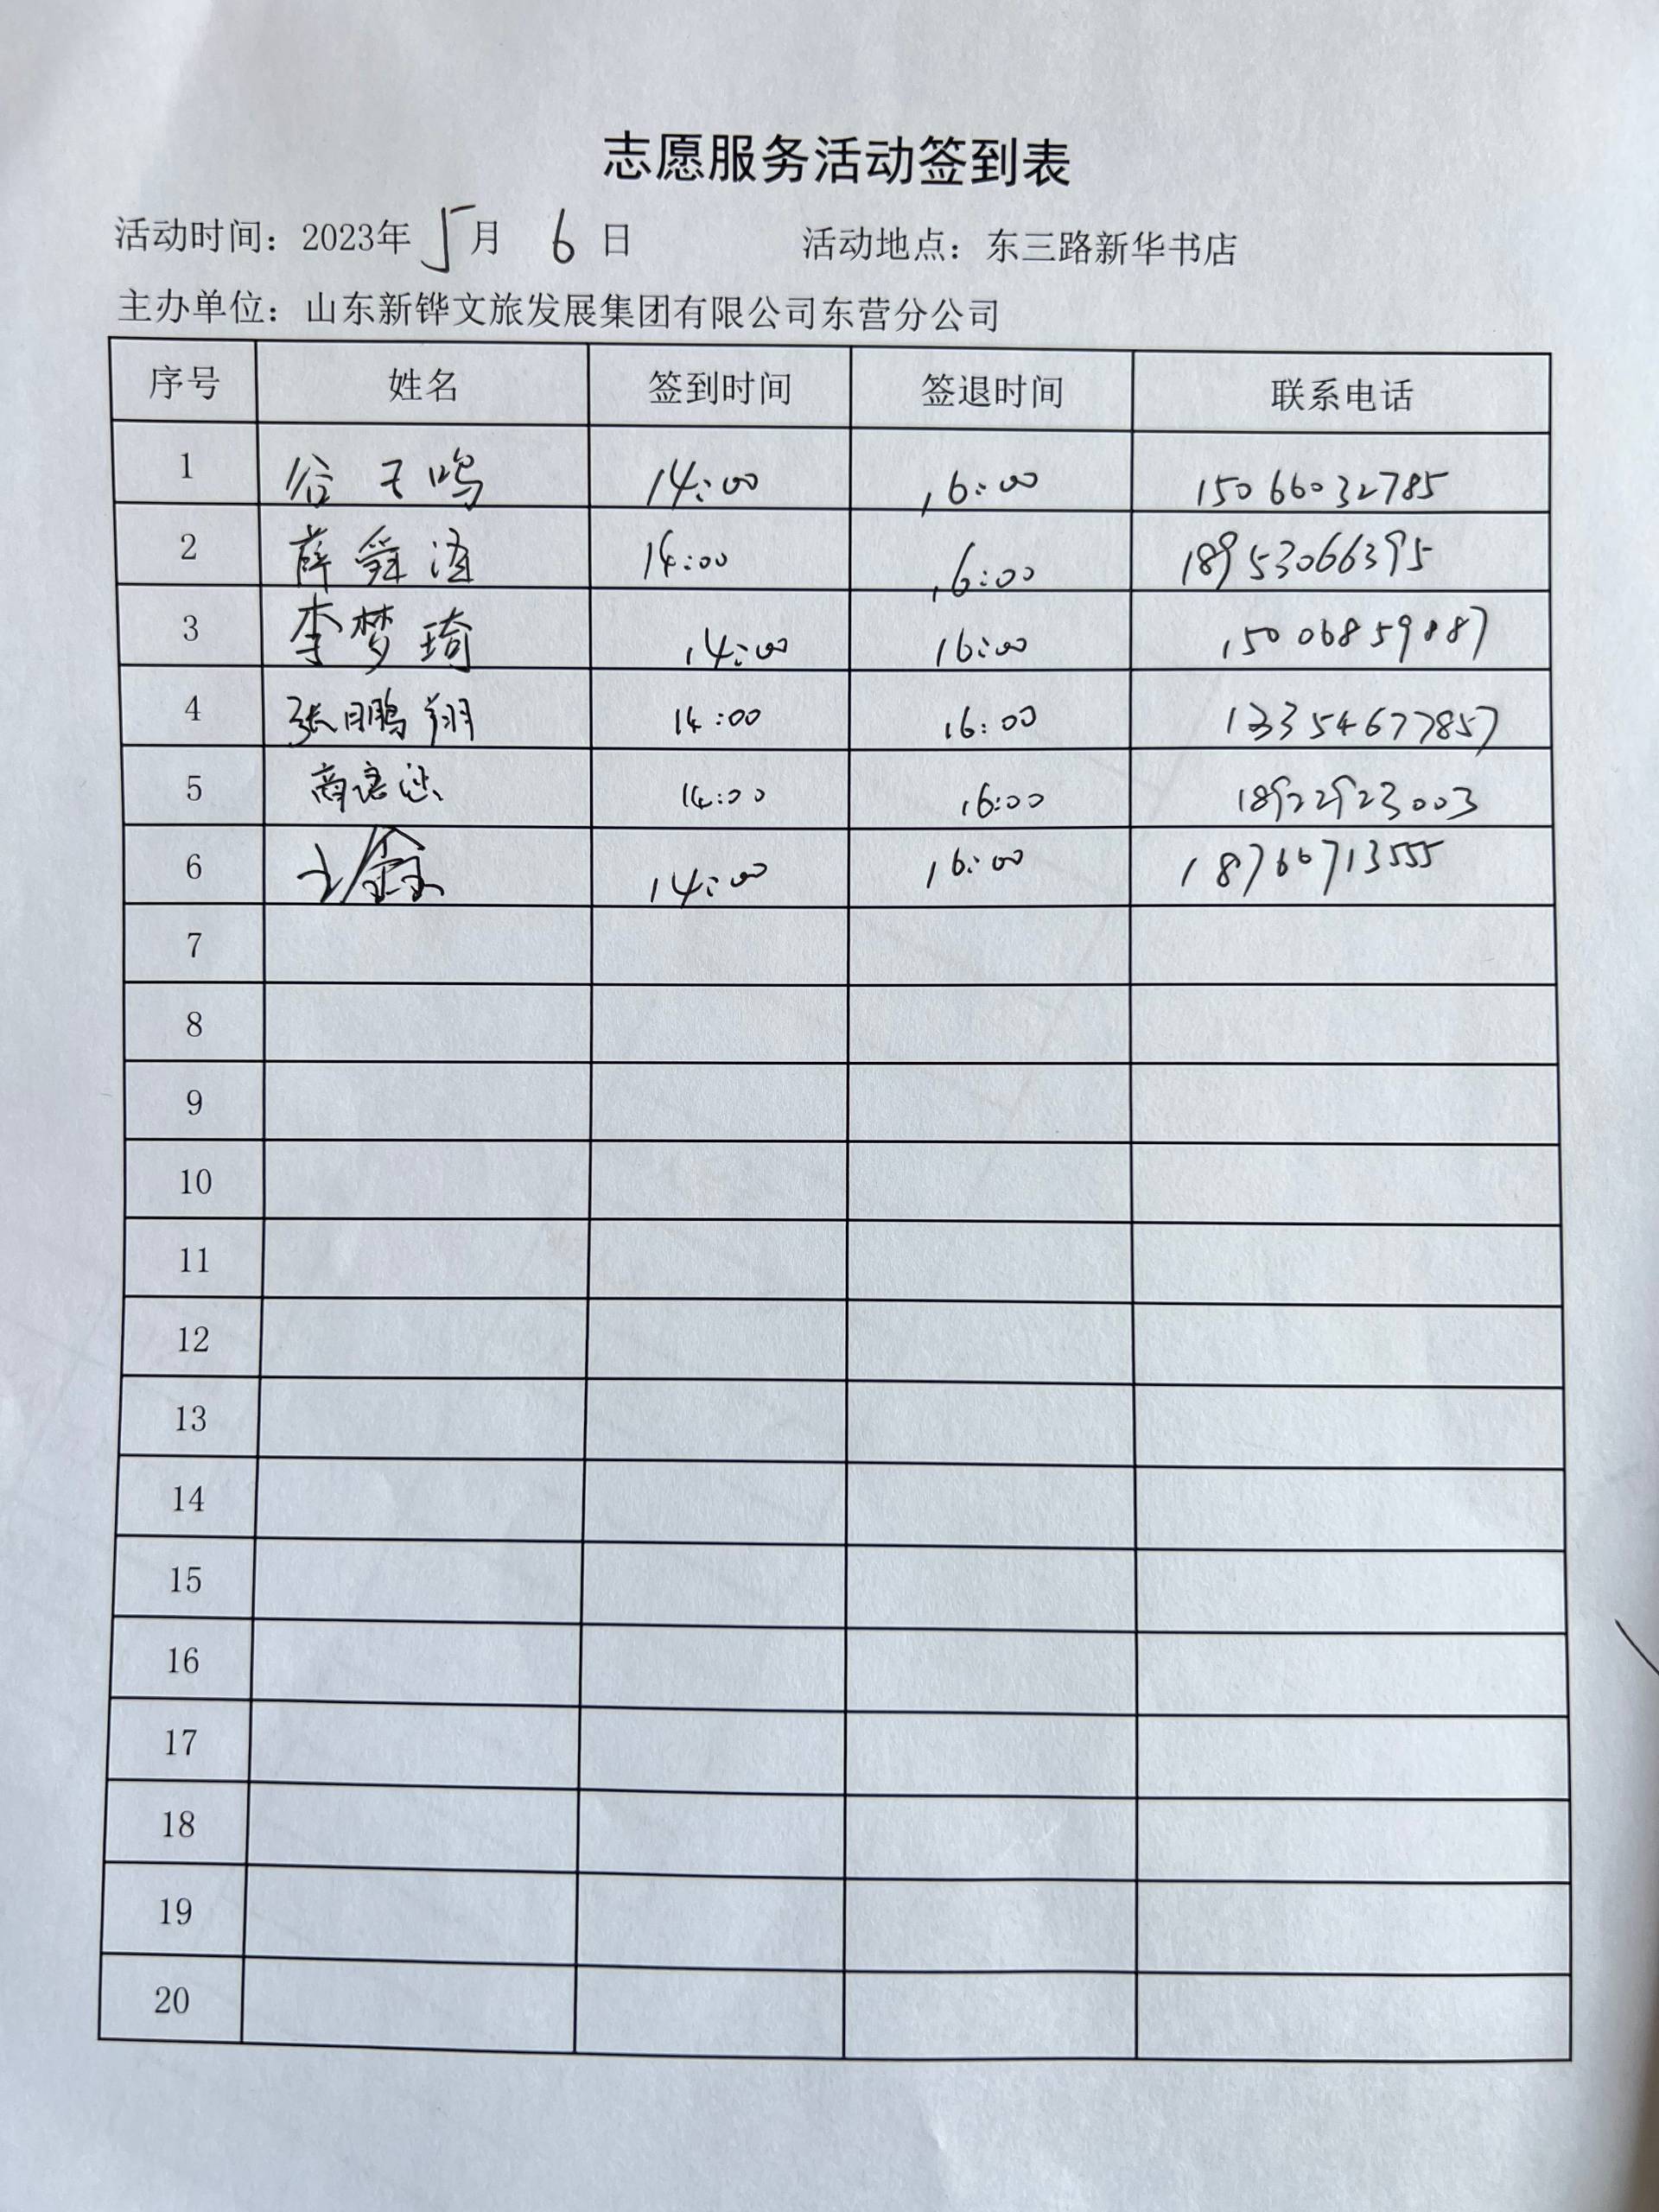 志愿服务活动签到表
活动时间：2023年 5月 6 日 活动地点：东三路新华书店
主办单位：山东新铧文旅发展集团有限公司东营分公司
序号 姓名 签到时间 签退时间 联系电话
1 谷 鸣 14:00 16:00 15066032785
2 薛舜 14:00 16:00 18953066395
3 李梦琦 14:00 16:00 15006859887
4 张鹏翔 14:00 16:00 13354677857
5 商 14:00 16:00 18922923003
6 14:00 16:00 18766713555
7
8
9
10
11
12
13
14
15
16
17
18
19
20